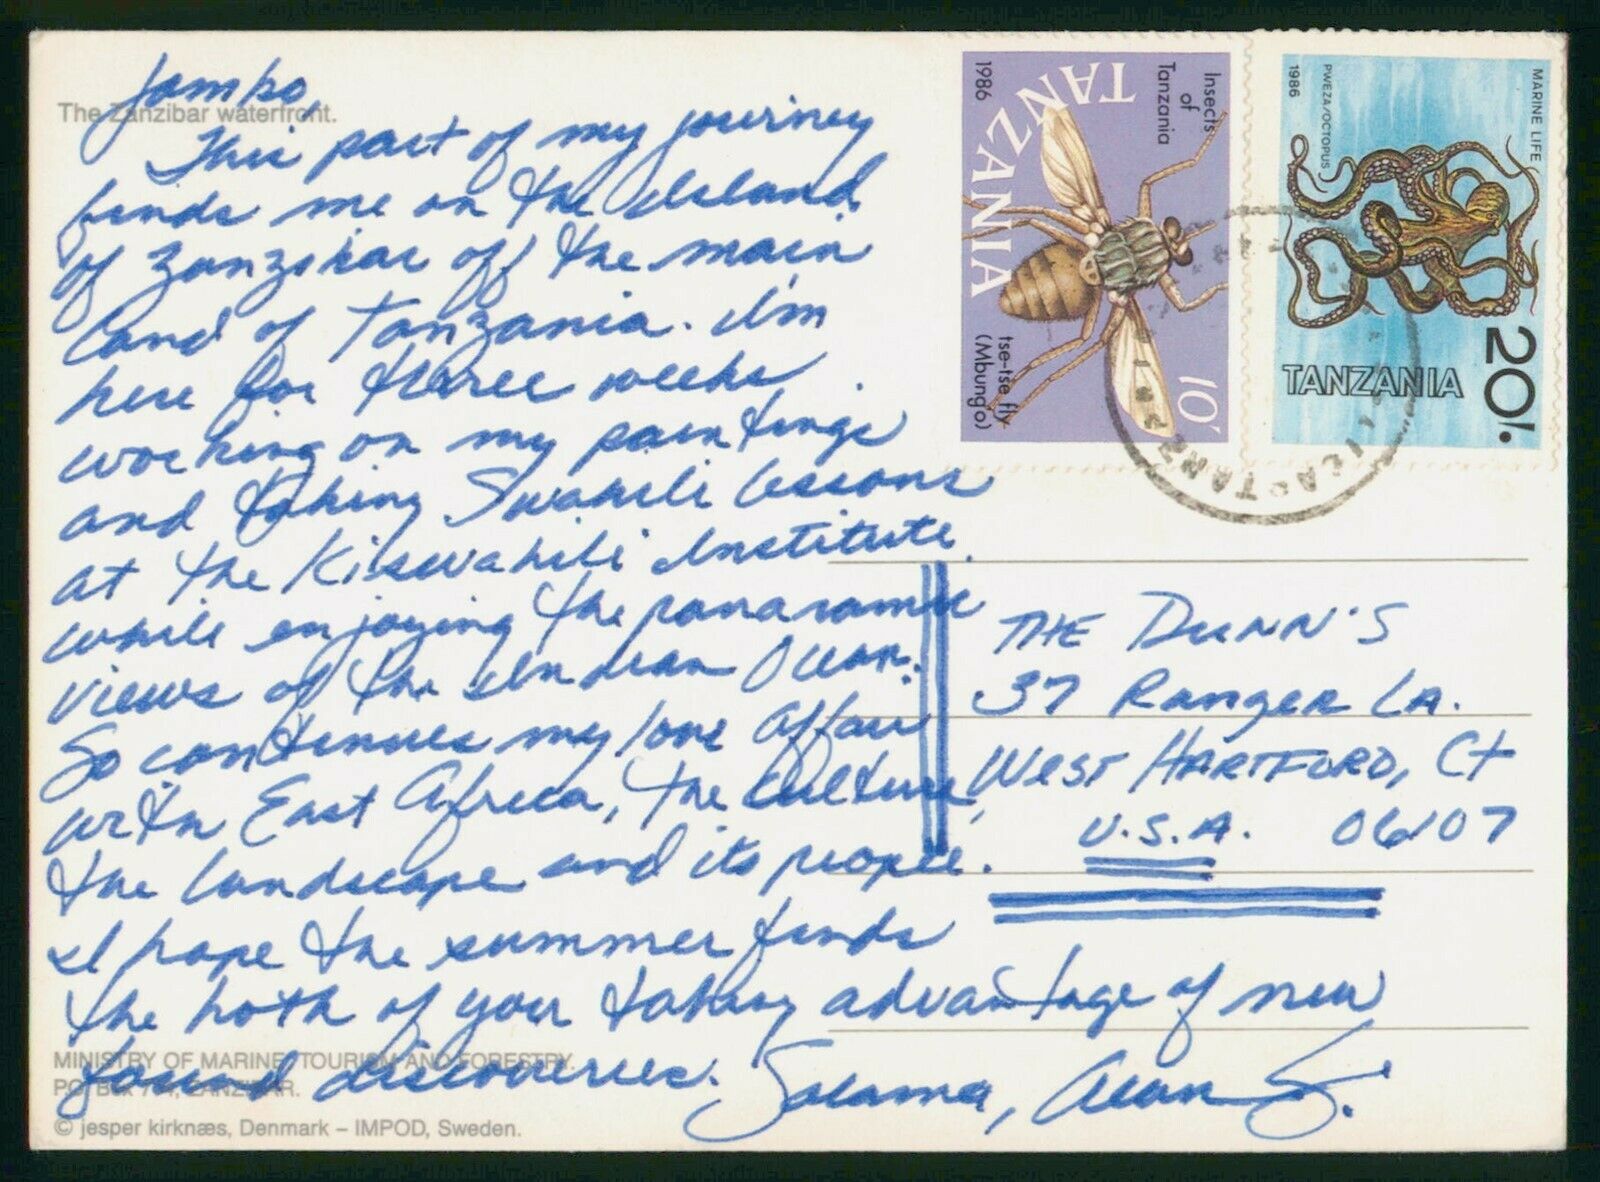 The Zanzibar waterfront.
Jambo,
This part of my journey
finds me on the Island
of Zanzibar off the main
land of Tanzania. I'm
here for three weeks
working on my paintings
and taking Swahili lessons
at the Kiswahili Institute
while enjoying the panaramic
views of the Indian Ocean.
So continues my love affair
with East Africa, the culture,
the landscape and its people.
I hope the summer finds
the both of you taking advantage of new
found discoveries. Salama, Alan S.
MINISTRY OF MARINE, TOURISM AND FORESTRY.
ZANZIBAR.
© jesper kirknæs, Denmark – IMPOD, Sweden.
1986
TANZANIA
Insects
of
Tanzania
tse-tse fly
(Mbungo)
10/
1986
PWEZA/OCTOPUS
MARINE LIFE
TANZANIA
20/.
TANZ
THE DUNN'S
37 RANGER LA.
WEST HARTFORD, CT
U.S.A. 06107